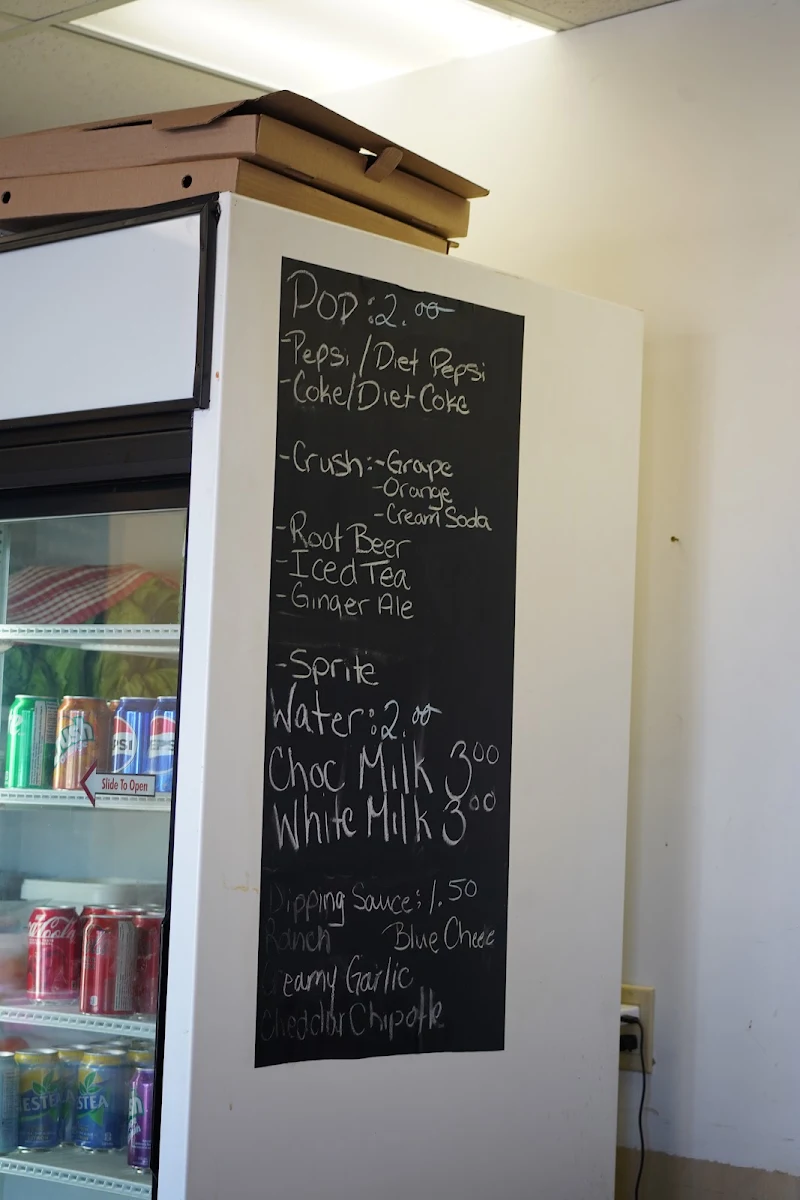 POP: 2.00
-Pepsi/Diet Pepsi
-Coke/Diet Coke
-Crush:-Grape
-Orange
-Cream Soda
-Root Beer
-Iced Tea
-Ginger Ale
-Sprite
Water: 2.00
Choc Milk 3.00
White Milk 3.00
Dipping Sauce: 1.50
Ranch Blue Cheese
Creamy Garlic
Cheddar Chipotle
Slide To Open